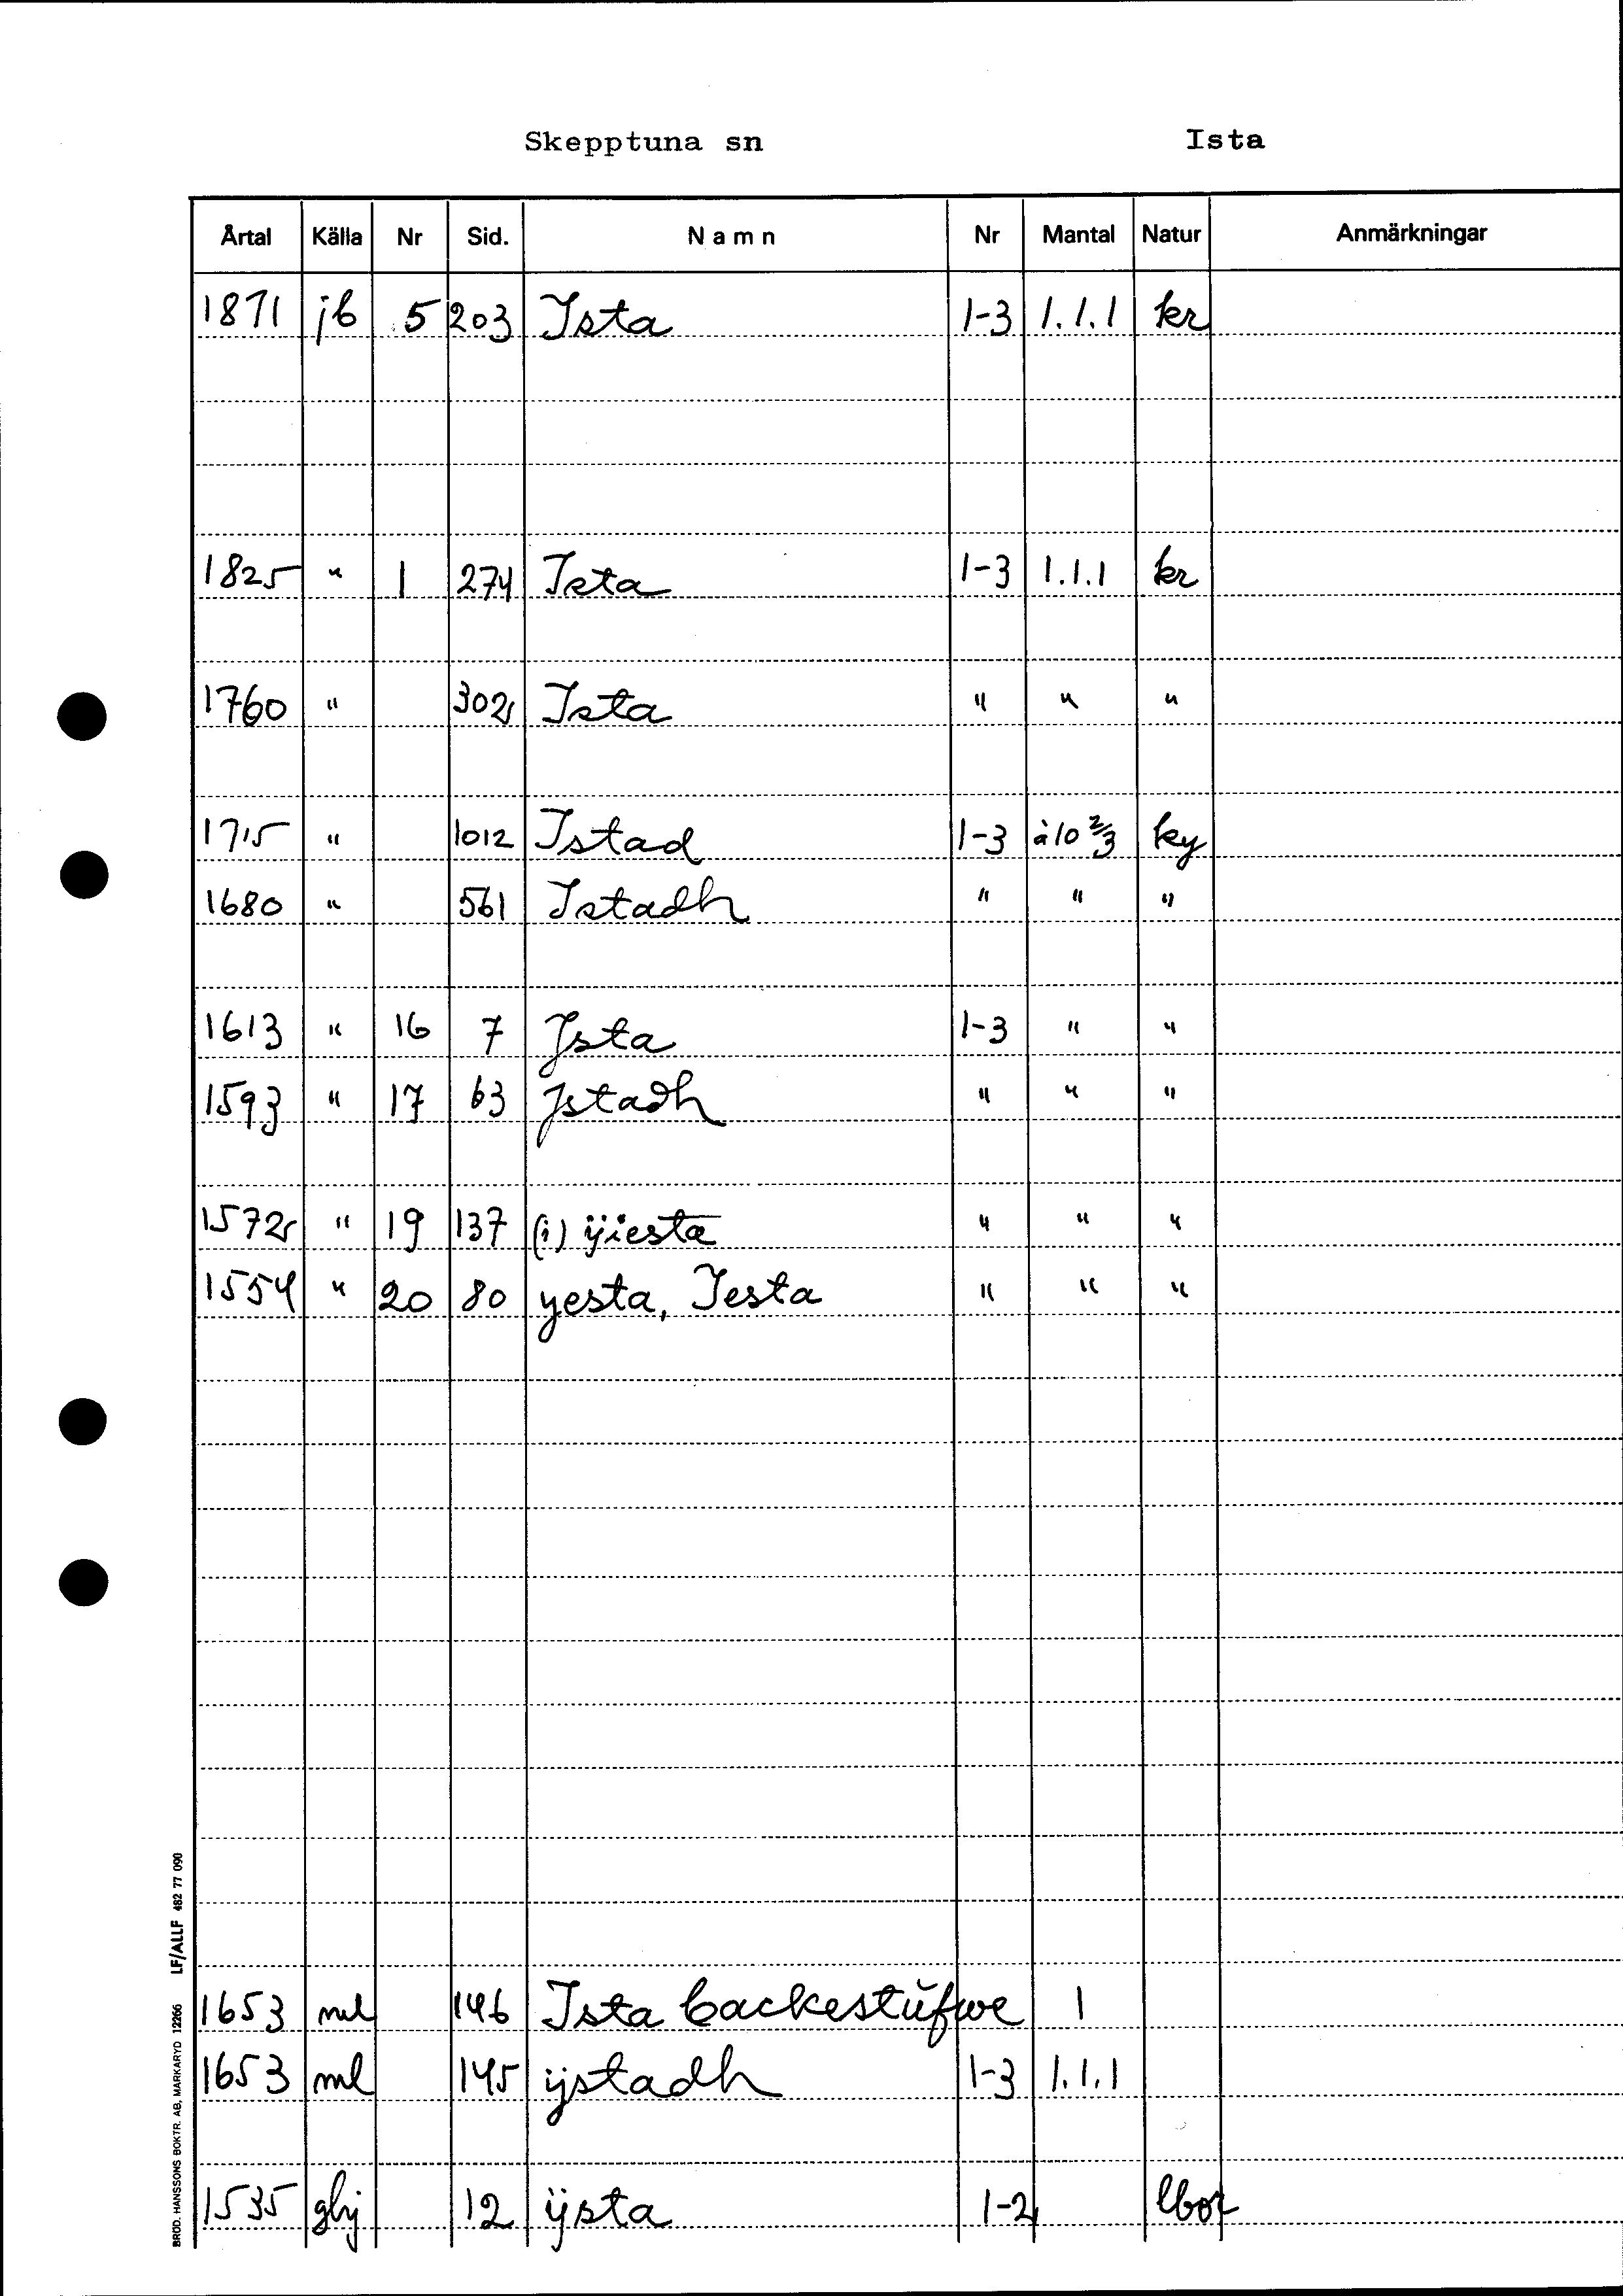 Skepptuna sn Ista
Årtal Källa Nr Sid. Namn Nr Mantal Natur Anmärkningar
1871 jb 5 203 Ista 1-3 1.1.1 kr
1825 " 1 274 Ista 1-3 1.1.1 kr
1760 " 302 Ista " " "
1715 " 1012 Istad 1-3 à 10 2/3 ky
1680 " 561 Istadh " " "
1613 " 16 7 Jsta 1-3 " "
1593 " 17 63 Jstadh " " "
1572 " 19 137 (i) ÿiesta " " "
1554 " 20 80 yesta, Iesta " " "
1653 ml 146 Ista backestŭfwe 1
1653 ml 145 ÿstadh 1-3 1.1.1
1535 ghj 12 ÿsta 1-2
BROD. HANSSONS BOKTR. AB, MARKARYD 12266 LF/ALLF 482 77 090